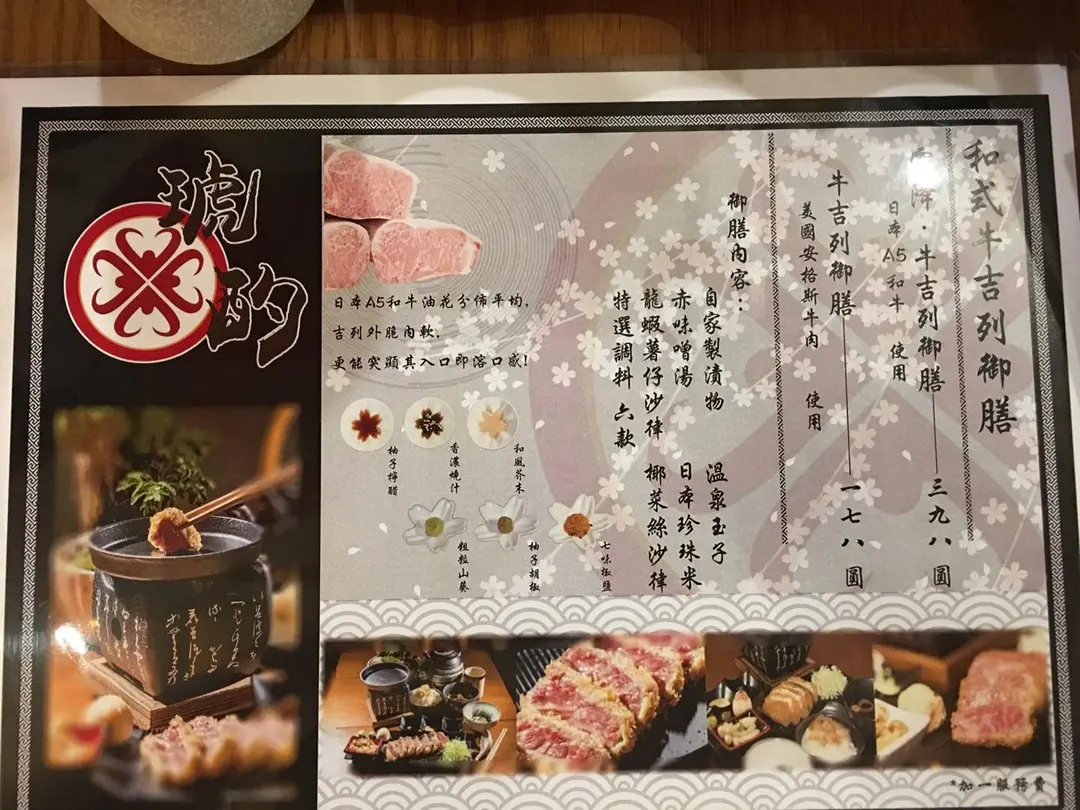 琥酌
和式牛吉列御膳
降・牛吉列御膳 三九八圓
日本A5和牛 使用
牛吉列御膳 一七八圓
美國安格斯牛肉 使用
御膳內容：
自家製漬物 溫泉玉子
赤味噌湯 日本珍珠米
龍蝦薯仔沙律 椰菜絲沙律
特選調料 六款
日本A5和牛油花分佈平均,
吉列外脆肉軟,
更能突顯其入口即溶口感!
和風芥末
香濃燒汁
柚子檸醋
七味椒鹽
柚子胡椒
粗粒山葵
*加一服務費